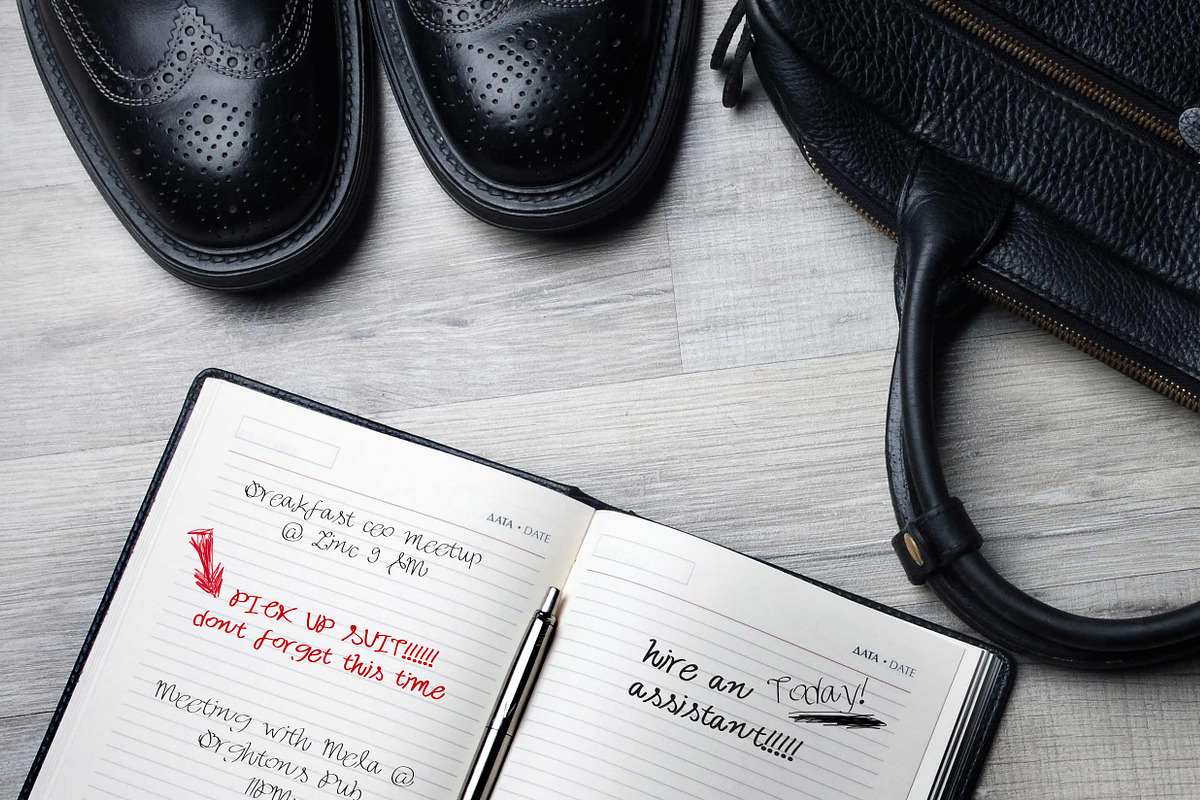 ΔATA • DATE
Breakfast ceo meetup
@ Zinc 9 AM
PICK UP SUIT!!!!!!
dont forget this time
Meeting with Mela @
Orghtons Pub
11PM
ΔATA • DATE
hire an Today!
assistant!!!!!